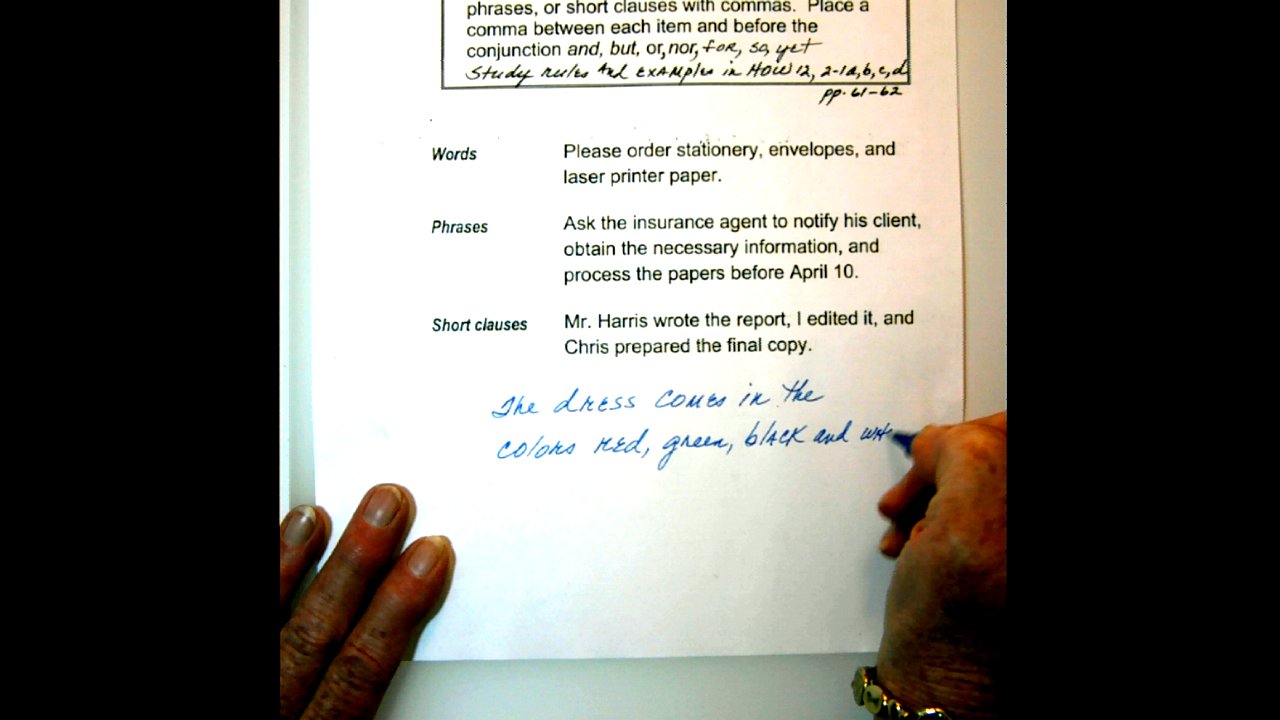 phrases, or short clauses with commas. Place a
comma between each item and before the
conjunction and, but, or, nor, for, so, yet
Study rules and examples in HOW 12, 2-1a,b,c,d
pp. 61-62
Words
Please order stationery, envelopes, and
laser printer paper.
Phrases
Ask the insurance agent to notify his client,
obtain the necessary information, and
process the papers before April 10.
Short clauses
Mr. Harris wrote the report, I edited it, and
Chris prepared the final copy.
The dress comes in the
colors red, green, black and